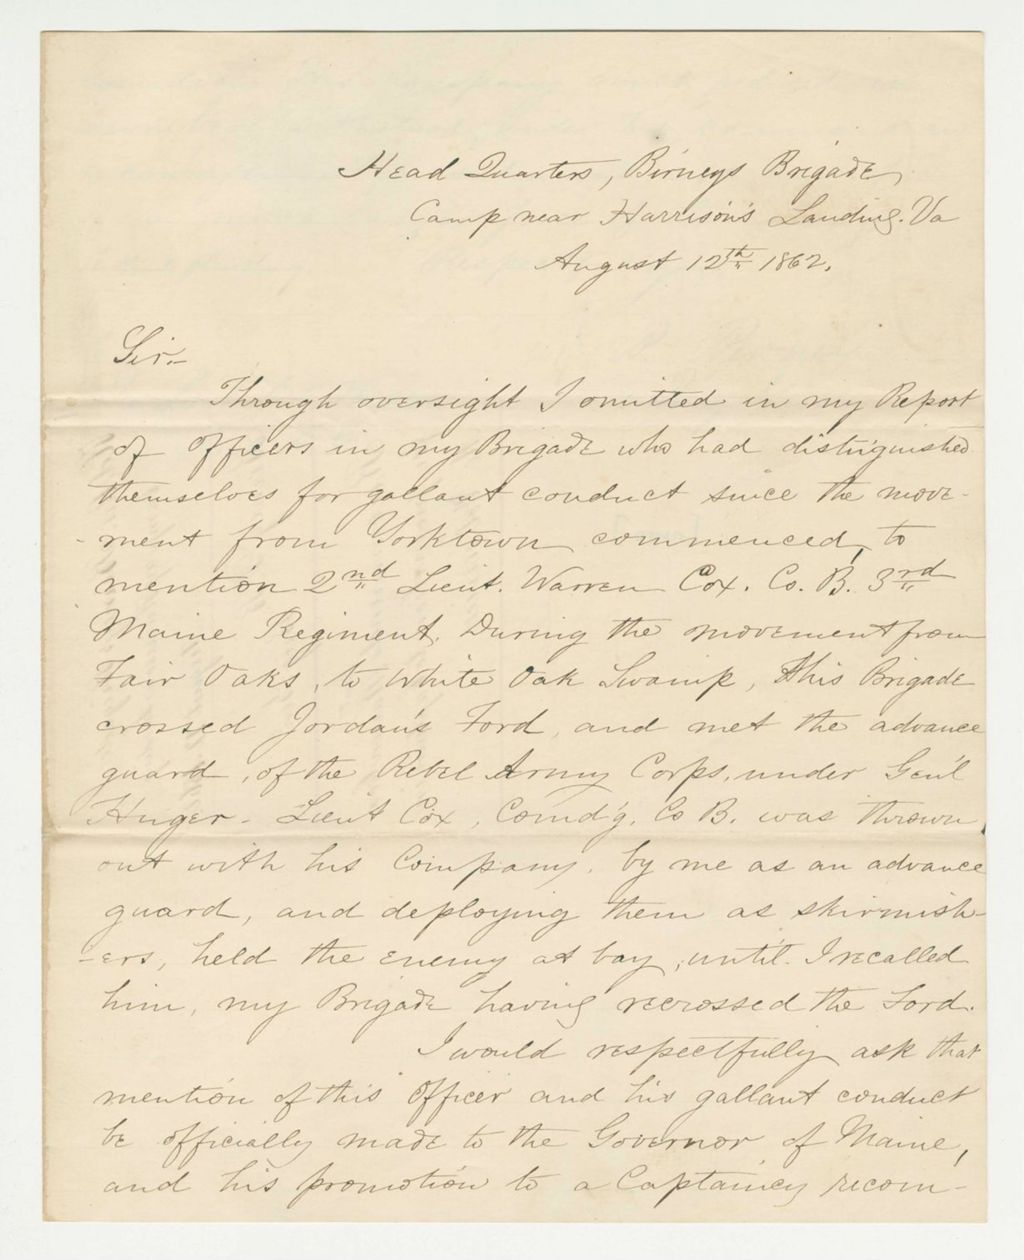 Head Quarters, Birneys Brigade,
Camp near Harrison's Landing. Va
August 12th 1862.
Sir.
Through oversight I omitted in my Report
of officers in my Brigade who had distinguished
themselves for gallant conduct since the move-
-ment from Yorktown commenced, to
mention 2nd Lieut. Warren Cox. Co. B. 3rd
Maine Regiment. During the movement from
Fair Oaks, to White Oak Swamp, this Brigade
crossed Jordan's Ford, and met the advance
guard, of the Rebel Army Corps, under Gen'l
Huger - Lieut Cox, Comd'g. Co B. was thrown
out with his Company, by me as an advance
guard, and deploying them as skirmish-
-ers, held the enemy at bay, until I recalled
him, my Brigade having recrossed the Ford.
I would respectfully ask that
mention of this officer and his gallant conduct
be officially made to the Governor of Maine,
and his promotion to a Captaincy recom-